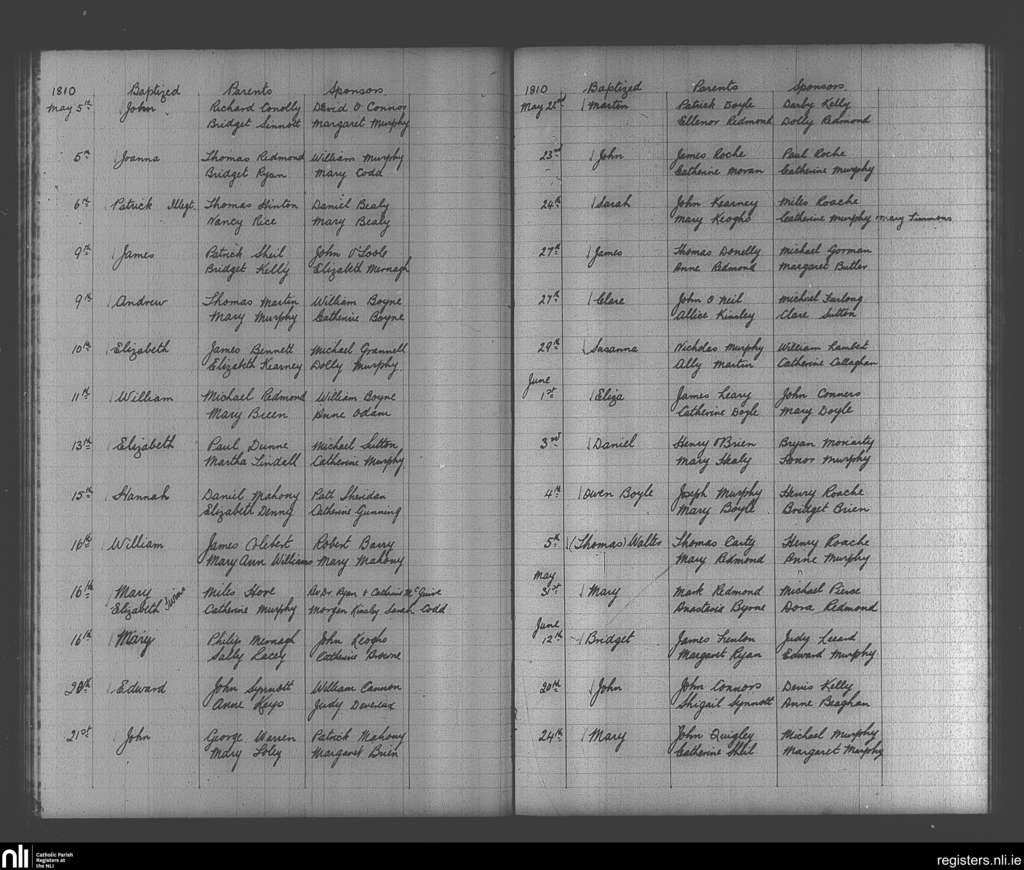 1810 Baptized Parents Sponsors
May 5th John Richard Conolly David O Connor
Bridget Sinnott Margaret Murphy
5th Joanna Thomas Redmond William Murphy
Bridget Ryan Mary Codd
6th Patrick Illegt. Thomas Hinton Daniel Bealy
Nancy Rice Mary Bealy
9th James Patrick Sheil John O'Toole
Bridget Kelly Elizabeth Mernagh
9th Andrew Thomas Martin William Boyne
Mary Murphy Catherine Boyne
10th Elizabeth James Bennett Michael Grannell
Elizabeth Kearney Dolly Murphy
11th William Michael Redmond William Boyne
Mary Breen Anne Odam
13th Elizabeth Paul Dunne Michael Sutton
Martha Tindall Catherine Murphy
15th Hannah Daniel Mahony Patt Sheridan
Elizabeth Denny Catherine Gunning
16th William James Robert Barry
Mary Ann Williams Mary Mahony
16th Mary Twins Miles Hore Revd. Dr. Ryan & Catherine McGuire
Elizabeth Catherine Murphy Morgan Kinsley Sarah Codd
16th Mary Philip Mernagh John Keoghs
Sally Lacey Catherine Browne
20th Edward John Synnott William Cannon
Anne Keys Judy Devereux
21st John George Warren Patrick Mahony
Mary Foley Margaret Brien
1810 Baptized Parents Sponsors
May 22nd Martin Patrick Doyle Darby Kelly
Ellenor Redmond Dolly Redmond
23rd John James Roche Paul Roche
Catherine Moran Catherine Murphy
24th Sarah John Kearney Miles Roache
Mary Keoghs Catherine Murphy Mary Timmons
27th James Thomas Donelly Michael Gorman
Anne Redmond Margaret Butler
27th Clare John O Neil Michael Furlong
Allice Kinsley Clare Sutton
29th Susanna Nicholas Murphy William Lambert
Ally Martin Catherine Callaghan
June
1st Eliza James Leary John Connors
Catherine Doyle Mary Doyle
3rd Daniel Henry O'Brien Bryan Moriarty
Mary Healy Honor Murphy
4th Owen Boyle Joseph Murphy Henry Roache
Mary Boyle Bridget Brien
5th (Thomas) Walter Thomas Carty Henry Roache
Mary Redmond Anne Murphy
May
31st Mary Mark Redmond Michael Pierse
Anastasia Byrne Dora Redmond
June
12th Bridget James Fenlon Judy Leeard
Margaret Ryan Edward Murphy
20th John John Connors Denis Kelly
Abigail Synnott Anne Beaghan
24th Mary John Quigley Michael Murphy
Catherine Shil Margaret Murphy
nli Catholic Parish
Registers at
the NLI
registers.nli.ie